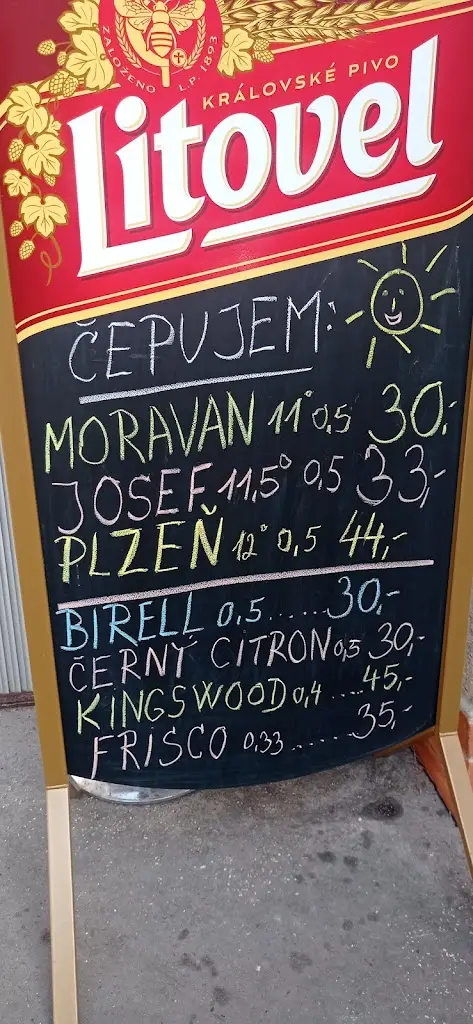 ZALOŽENO L.P. 1893
KRÁLOVSKÉ PIVO
Litovel
ČEPUJEM:
MORAVAN 11° 0,5 30,-
JOSEF 11,5° 0,5 33,-
PLZEŇ 12° 0,5 44,-
BIRELL 0,5......30,-
ČERNÝ CITRON 0,5 30,-
KINGSWOOD 0,4 ....45,-
FRISCO 0,33......35,-